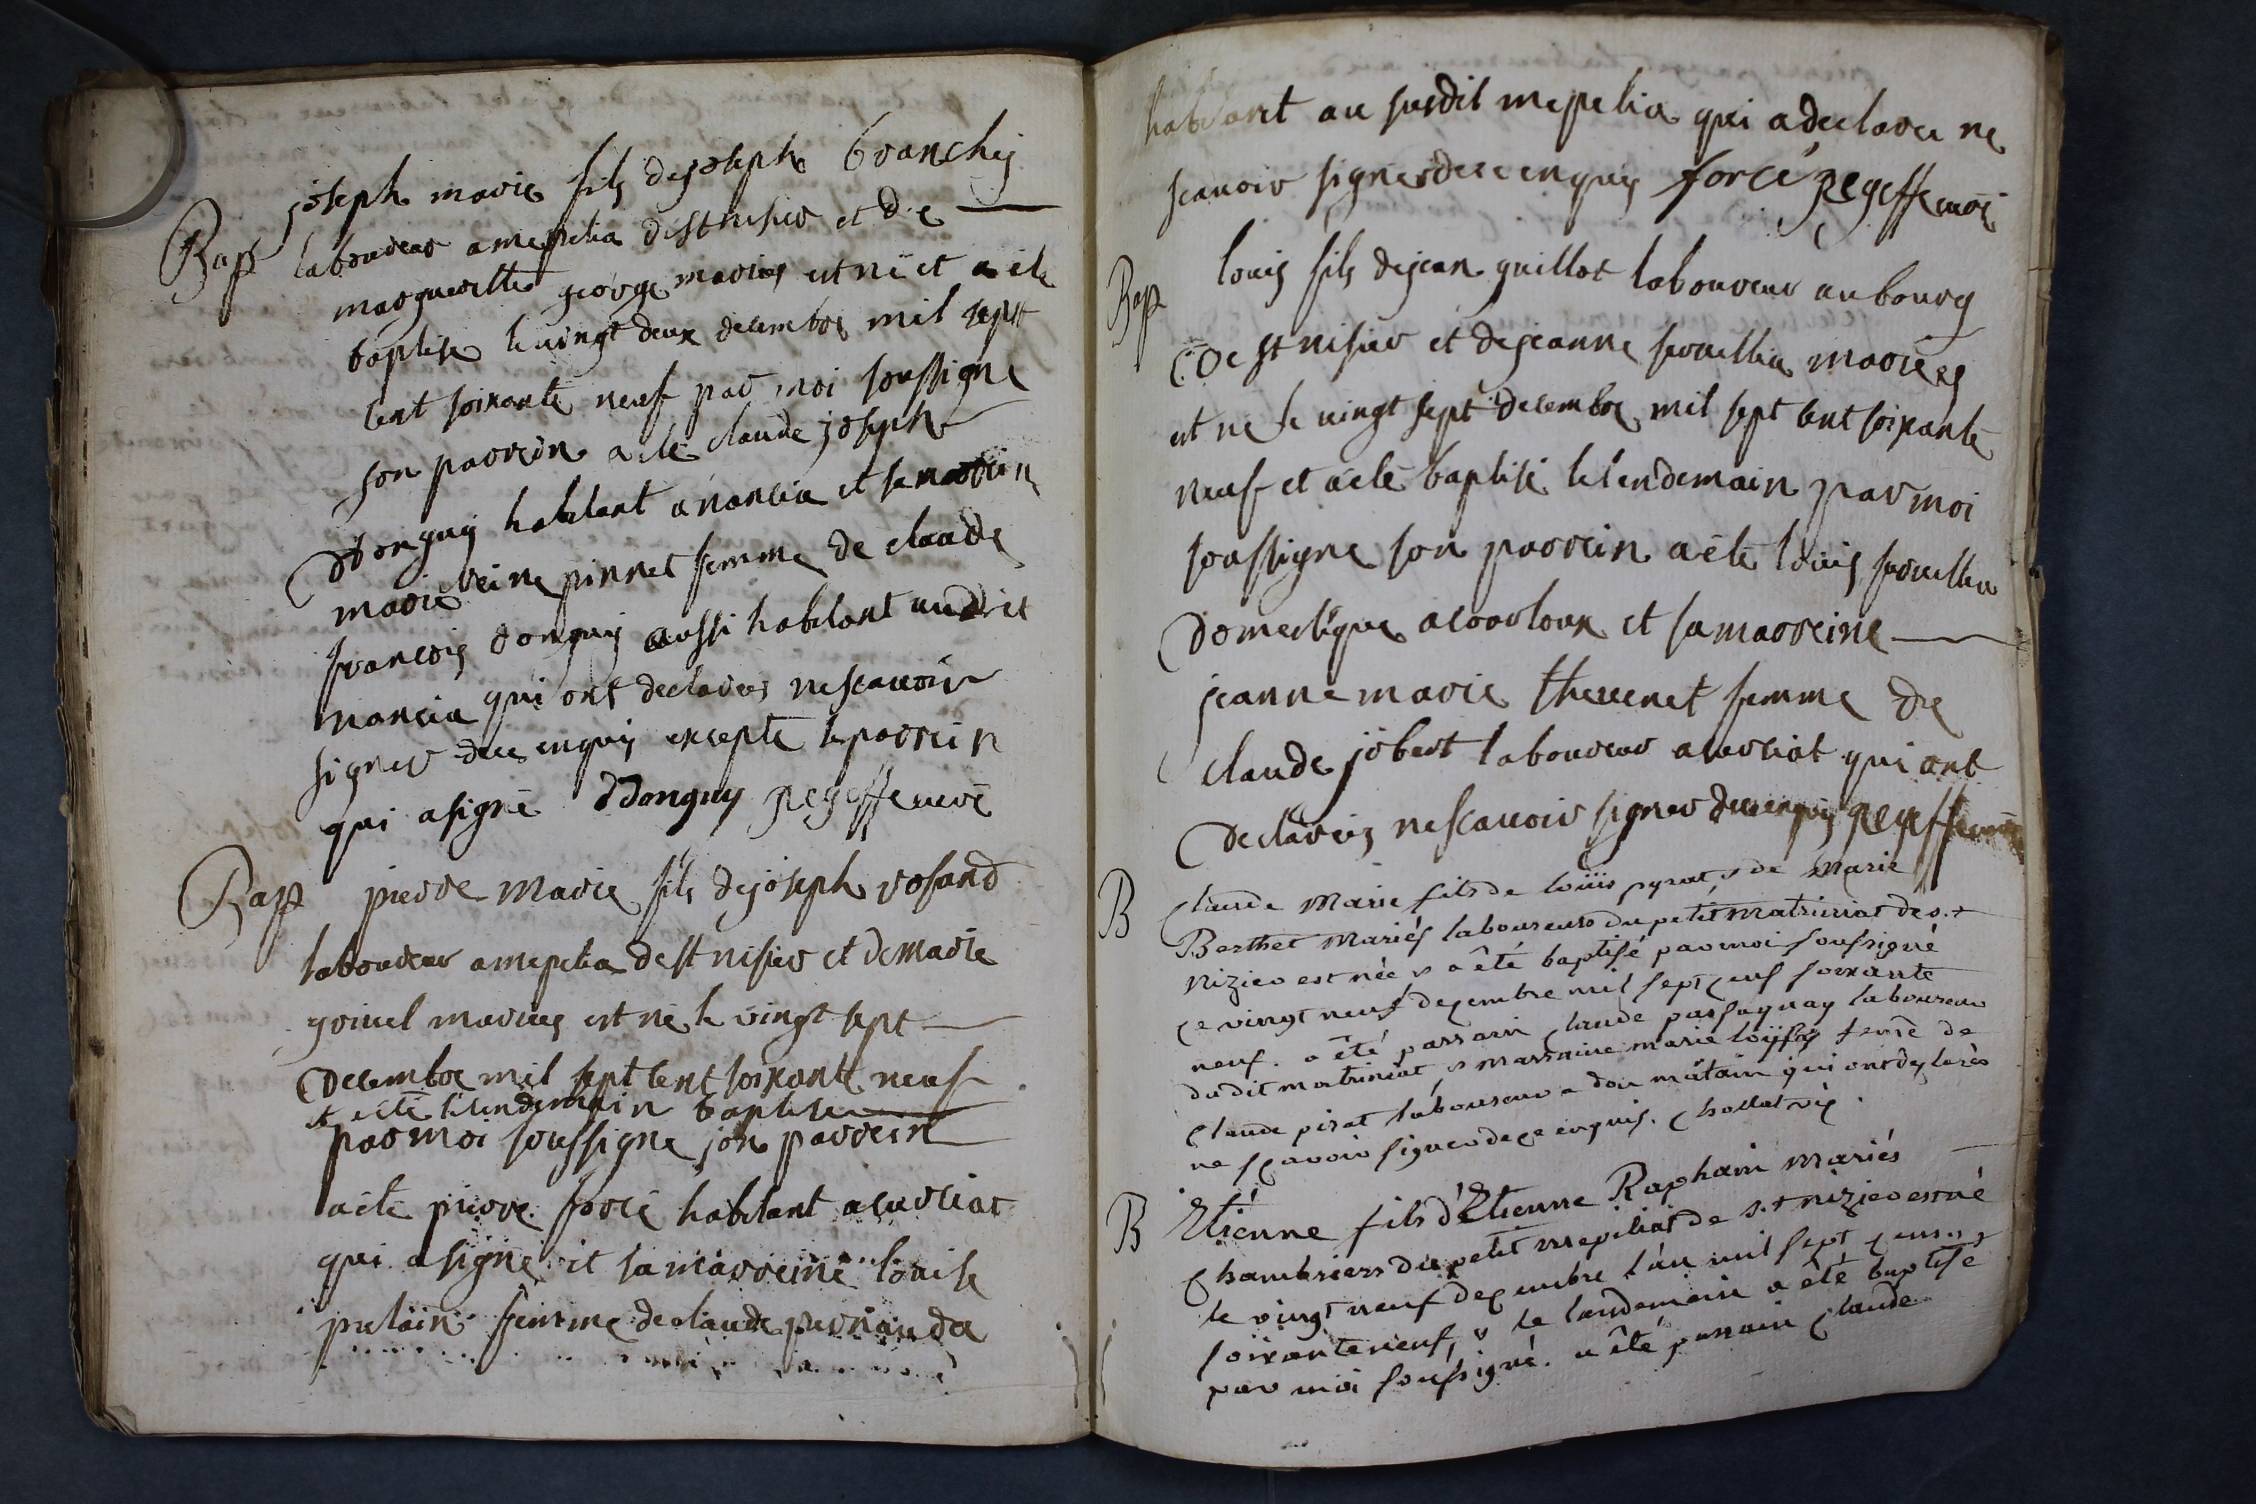 Bap
joseph marie fils de joseph branchy
laboureur a mepelia de st nisier et de
margueritte george mariés est né et a ete
baptise le vingt deux decembre mil sept
cent soixante neuf par moi soussigné
son parrein a ete claude joseph
donguy habitant a nancia et sa marrein
marie reine pinnet femme de claude
francois donguy aussi habitant audit
nancia qui ont declarers ne scauoir
signer de ce enquis excepte le parrein
qui a signé ddonguy
Bap
pierre marie fils de joseph rosand
laboureur a mepelia de st nisier et de marie
goiuel mariees est né le vingt sept
decembre mil sept cent soixante neuf
et a été le lendemain baptise
par moi soussigne son parrein
a été pierre forcé habitant a curciat
qui a signé et sa marreine louise
pulain femme de claude
habitant au susdit mepelia qui a declarer ne
scauoir signer de ce enquis forcé
Bap
louis fils de jean guillot laboureur au bourg
de st nisier et de jeanne mariees
est né le vingt sept decembre mil sept cent soixante
neuf et a été baptisé le lendemain par moi
soussigne son parrein a été louis
domestique a courtoux et sa marreine
jeanne marie theuenet femme de
claude jobert laboureur a curciat qui ont
declarés ne scauoir signer de ce enquis
B
Claude Marie fils de loüis pyrat, & de Marie
Berthet Mariés laboureurs du petit Matriniat de s.t
Nizier est née & a êté baptisé par moi soussigné
ce vingt neuf decembre mil sept cens soixante
neuf. a êté parrain Claude passaquay laboureur
dudit matriniat, & marraine marie feme de
Claude pirat laboureur a qui ont declarés
ne sçavoir signer de ce enquis. Chollat vic.
B
Etiénne fils d'Etienne Raphain Mariés
Chambriers du petit mepiliat de s.t nizier est né
le vingt neuf decembre l'an mil sept cens
soixante neuf, & le landemain a êté baptisé
par moi soussigné. a êté parrain Claude